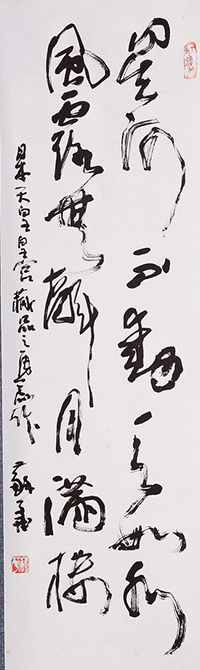 星河不動天如水
風露無聲月滿樓
日本天皇皇宮藏品之再創作